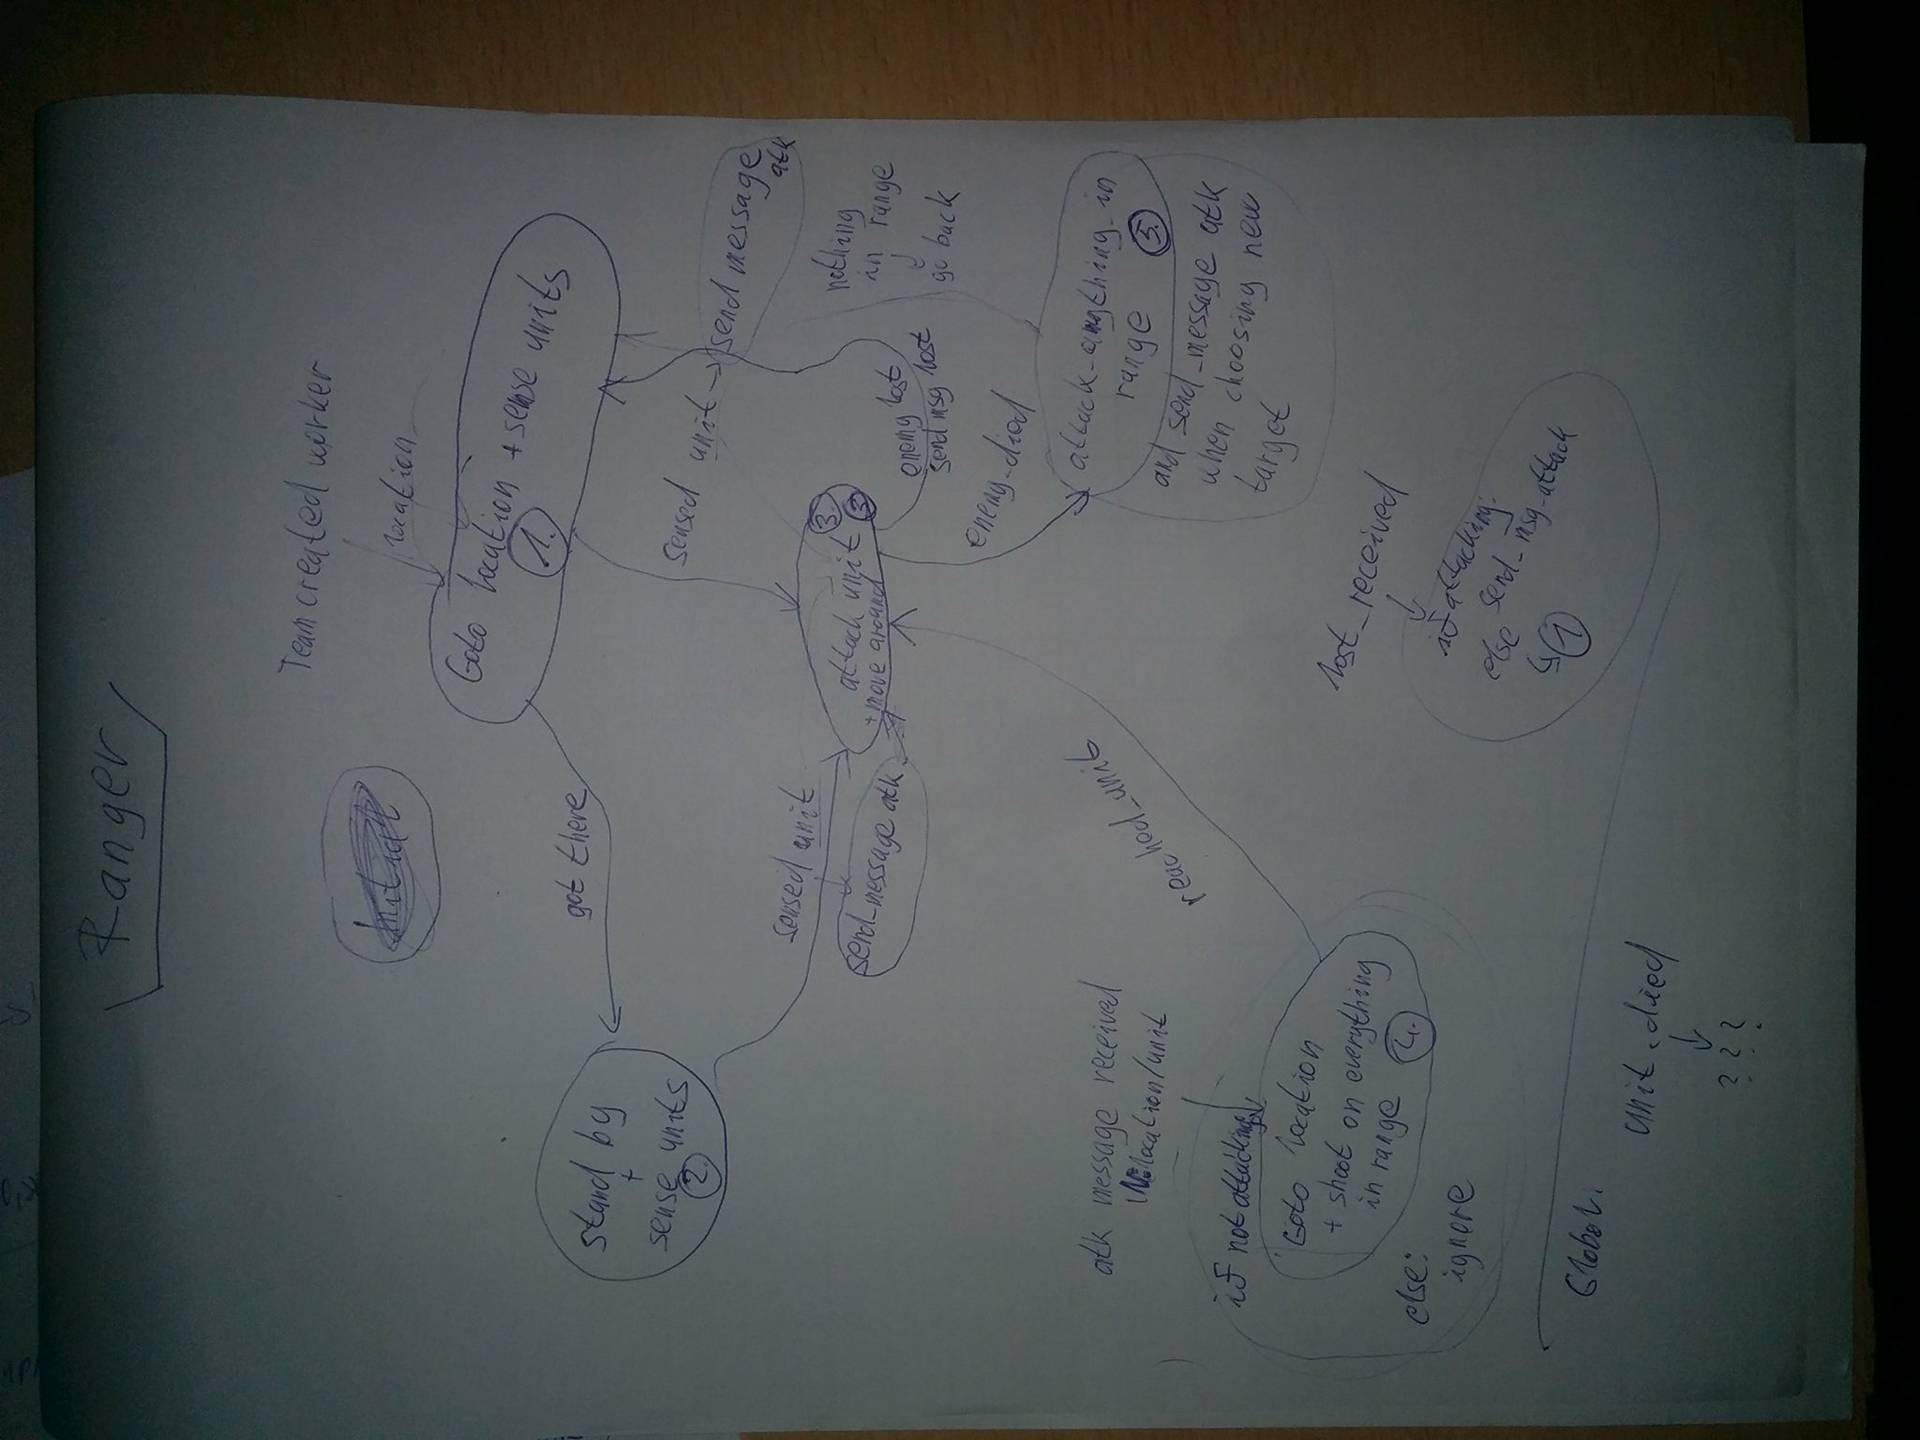 Ranger
Team created worker
location
Goto location + sense units
1.
got there
Stand by
+
sense units
2.
sensed unit
send message
atk
sensed unit
send_message atk
attack unit
+ move around
3.
3
enemy lost
send msg lost
nothing
in range
go back
enemy_died
attack_anything_in
range
5.
and send_message atk
when choosing new
target
reached_unit
atk message received
location/unit
if not attacking
Goto location
+ shoot on everything
in range
4.
else:
ignore
lost_received
if attacking:
else send_msg_attack
1
Global.
unit_died
???